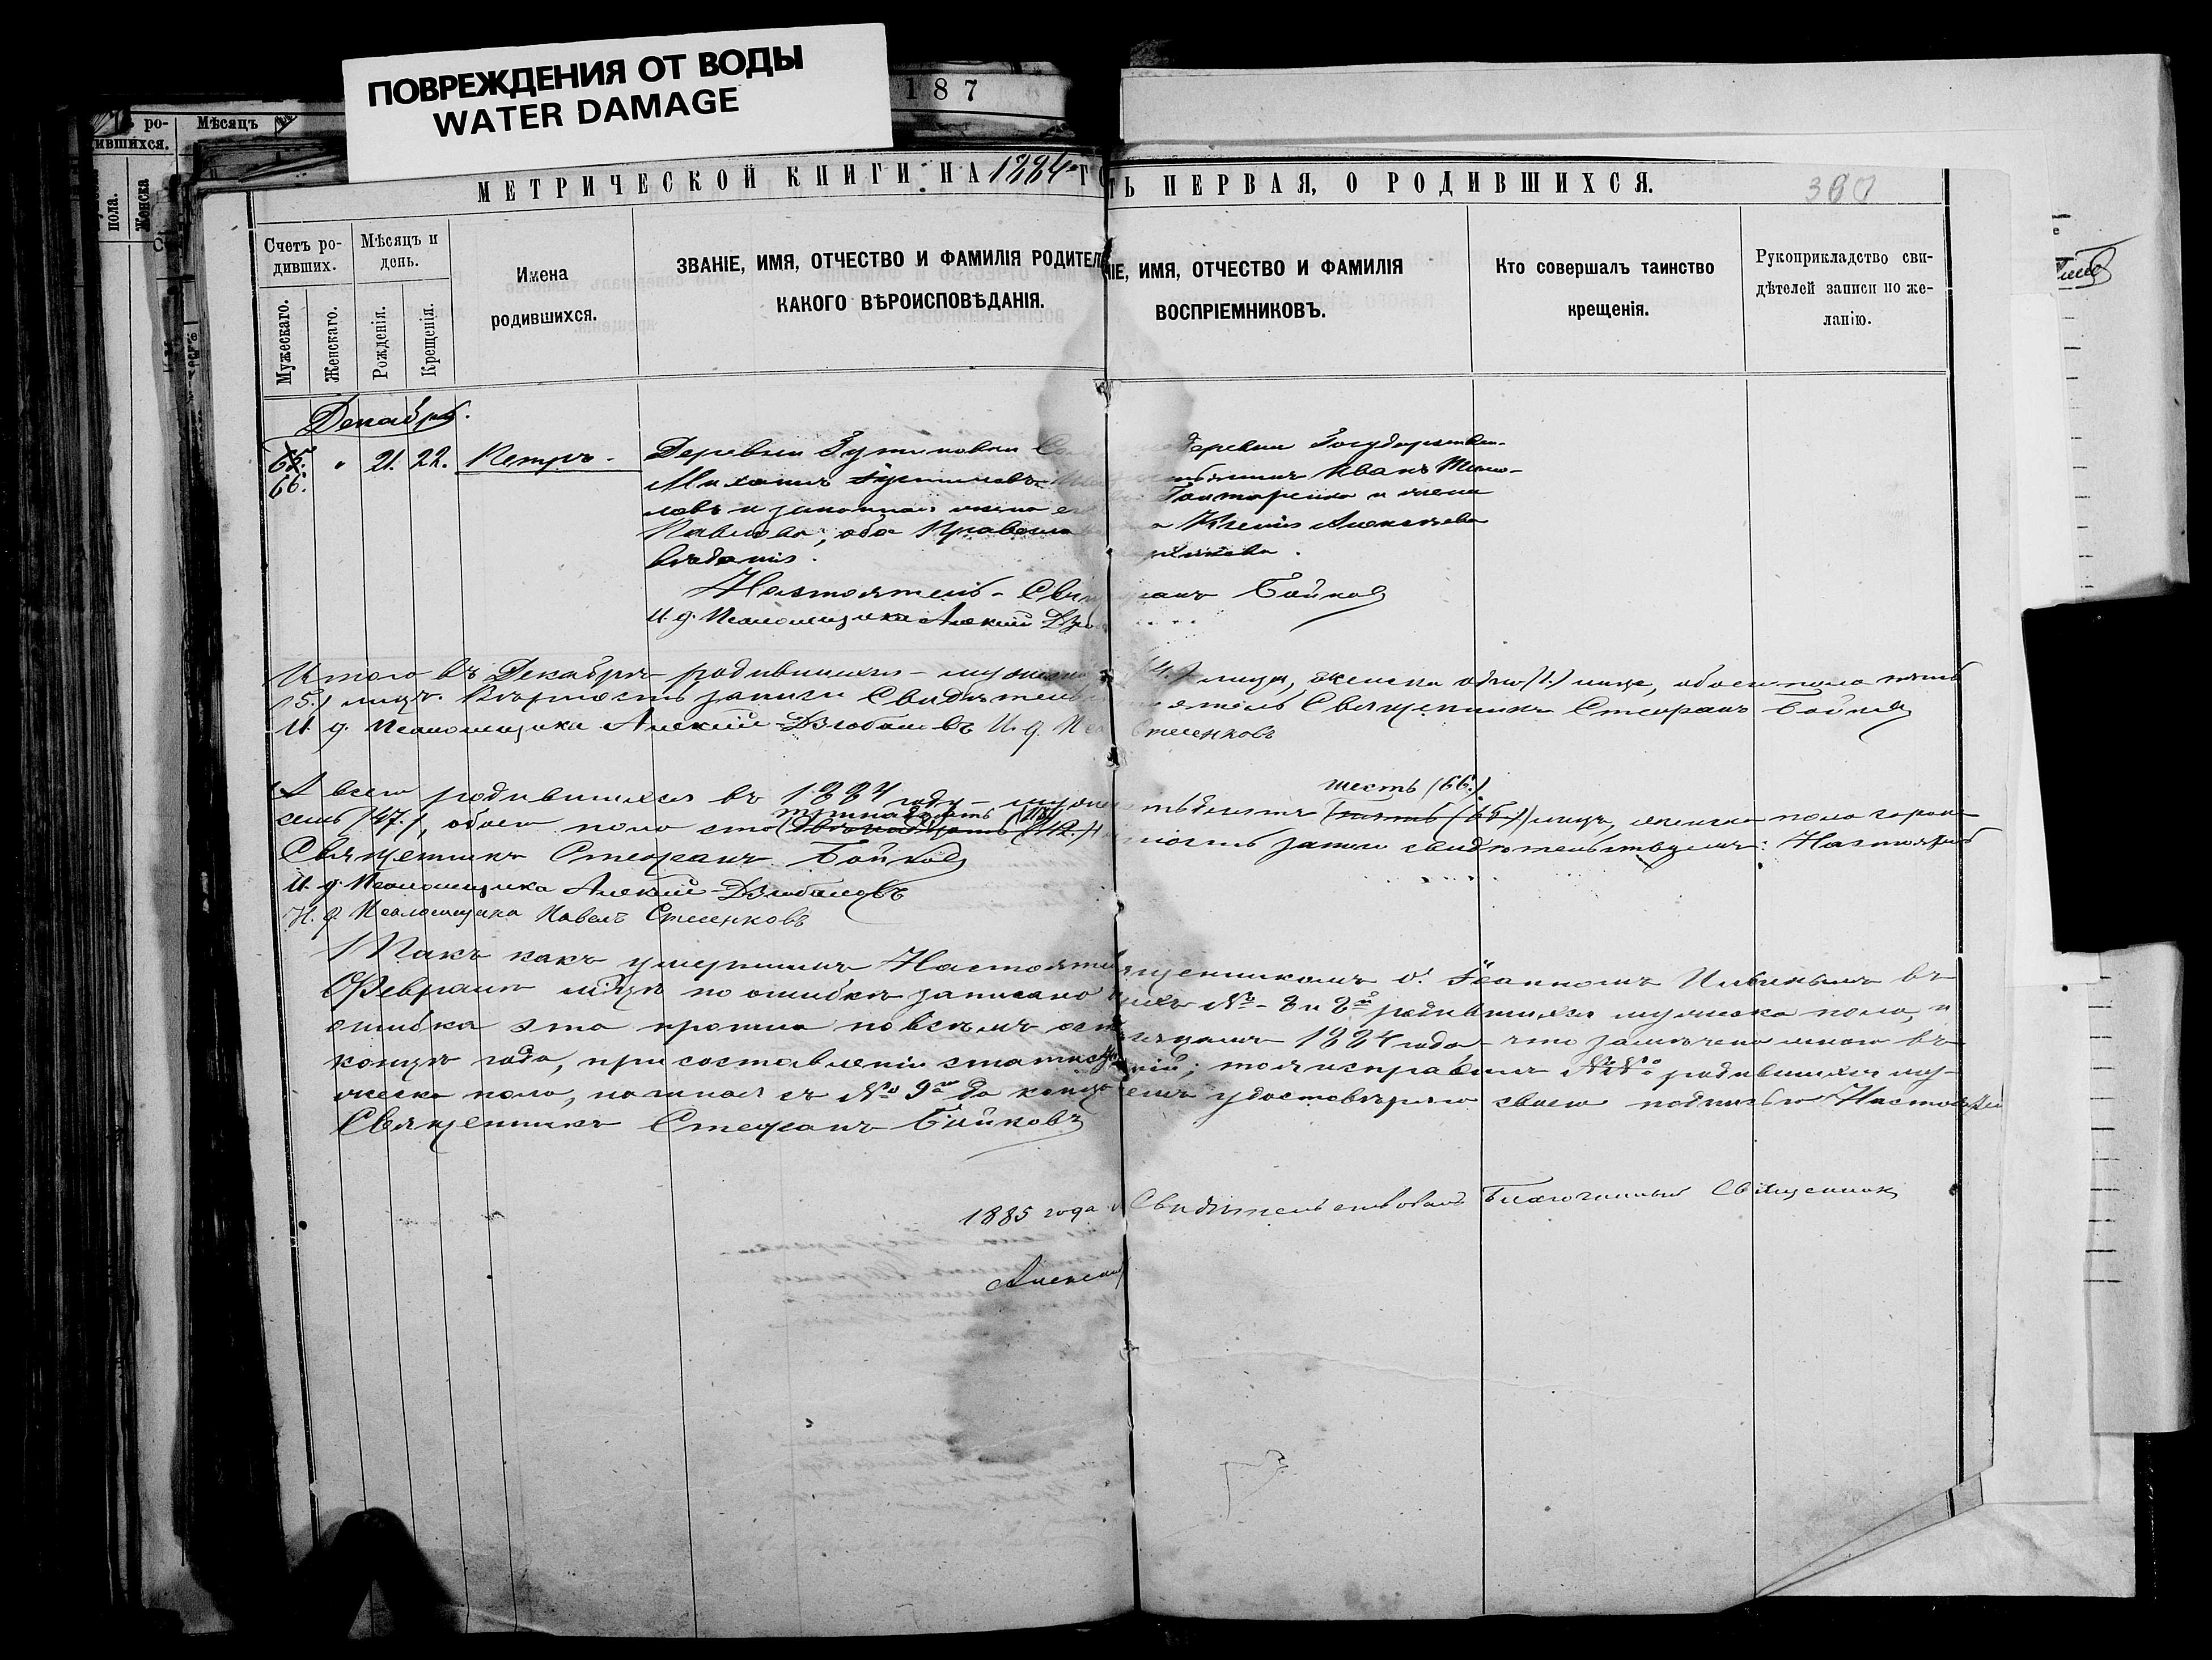 ПОВРЕЖДЕНИЯ ОТ ВОДЫ
WATER DAMAGE
187
ро-
ившихся.
Мѣсяцъ
пола.
Женска
МЕТРИЧЕСКОЙ КНИГИ НА 1884 ГО
ТЬ ПЕРВАЯ, О РОДИВШИХСЯ.
360
Счетъ ро-
дивших.
Мужескаго.
Женскаго.
Мѣсяцъ и
день.
Рожденія.
Крещенія.
Имена
родившихся.
ЗВАНІЕ, ИМЯ, ОТЧЕСТВО И ФАМИЛІЯ РОДИТЕЛ
КАКОГО ВѢРОИСПОВѢДАНІЯ.
ІЕ, ИМЯ, ОТЧЕСТВО И ФАМИЛІЯ
ВОСПРІЕМНИКОВЪ.
Кто совершалъ таинство
крещенія.
Рукоприкладство сви-
дѣтелей записи по же-
ланію.
Декабрь.
65.
66.
21. 22. Петръ.
Деревни
Михаилъ
ловъ и законная жена его
Павлова; оба Правосла
вѣданія.
деревни Государствен-
Иванъ
и жена
Ксенія Алексѣева
Настоятель - Свящ
фанъ Бойковъ
И. д. Псаломщика Алексій
Итого въ Декабрѣ родившихся - мужеска
4.) лица, женска одно (1.) лице, обоего пола пять
(5.) лицъ. Вѣрность записи Свидѣтель
ятель Священникъ Стефанъ Бойковъ
И. д. Псаломщика Алексій Дзюбановъ И. д. Пса
Стеценковъ
А всего родившихся въ 1884 году - муже
шесть (66.)
тьдесятъ пять (65.) лицъ, женска пола сорокъ
семь (47.), обоего пола сто двѣнадцать (112.)
тринадцать (113)
ность записи свидѣтельствуемъ: Настоятель
Священникъ Стефанъ Бойковъ
И. д. Псаломщика Алексій Дзюбановъ
И. д. Псаломщика Павелъ Стеценковъ
Такъ какъ умершимъ Настояте
щенникомъ о. Іоанномъ въ
Февралѣ м-цѣ по ошибкѣ записано
№ 8 и 8й родившихся мужеска пола, и
ошибка эта прошла по всѣмъ ост
1884 года - что замѣчено мною въ
концѣ года, при составленіи статисти
ній; то я исправилъ №№ родившихся му-
жеска пола, начиная съ № 9го до конца
емъ удостовѣряю своею подписью Настоятель
Священникъ Стефанъ Бойковъ
1885 года
Свидѣтельствовалъ Благочинный Священникъ
Алексан